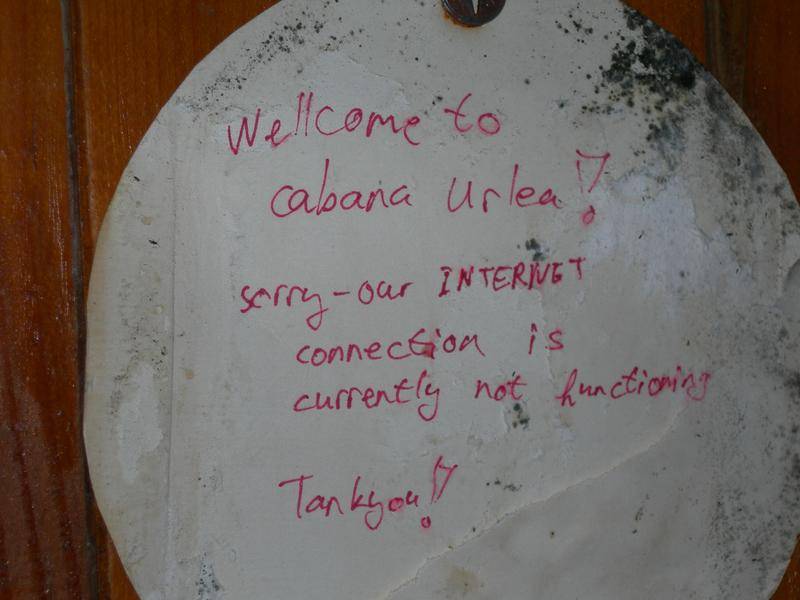 Wellcome to
cabana Urlea!
sorry-our INTERNET
connection is
currently not functioning
Tankyou!